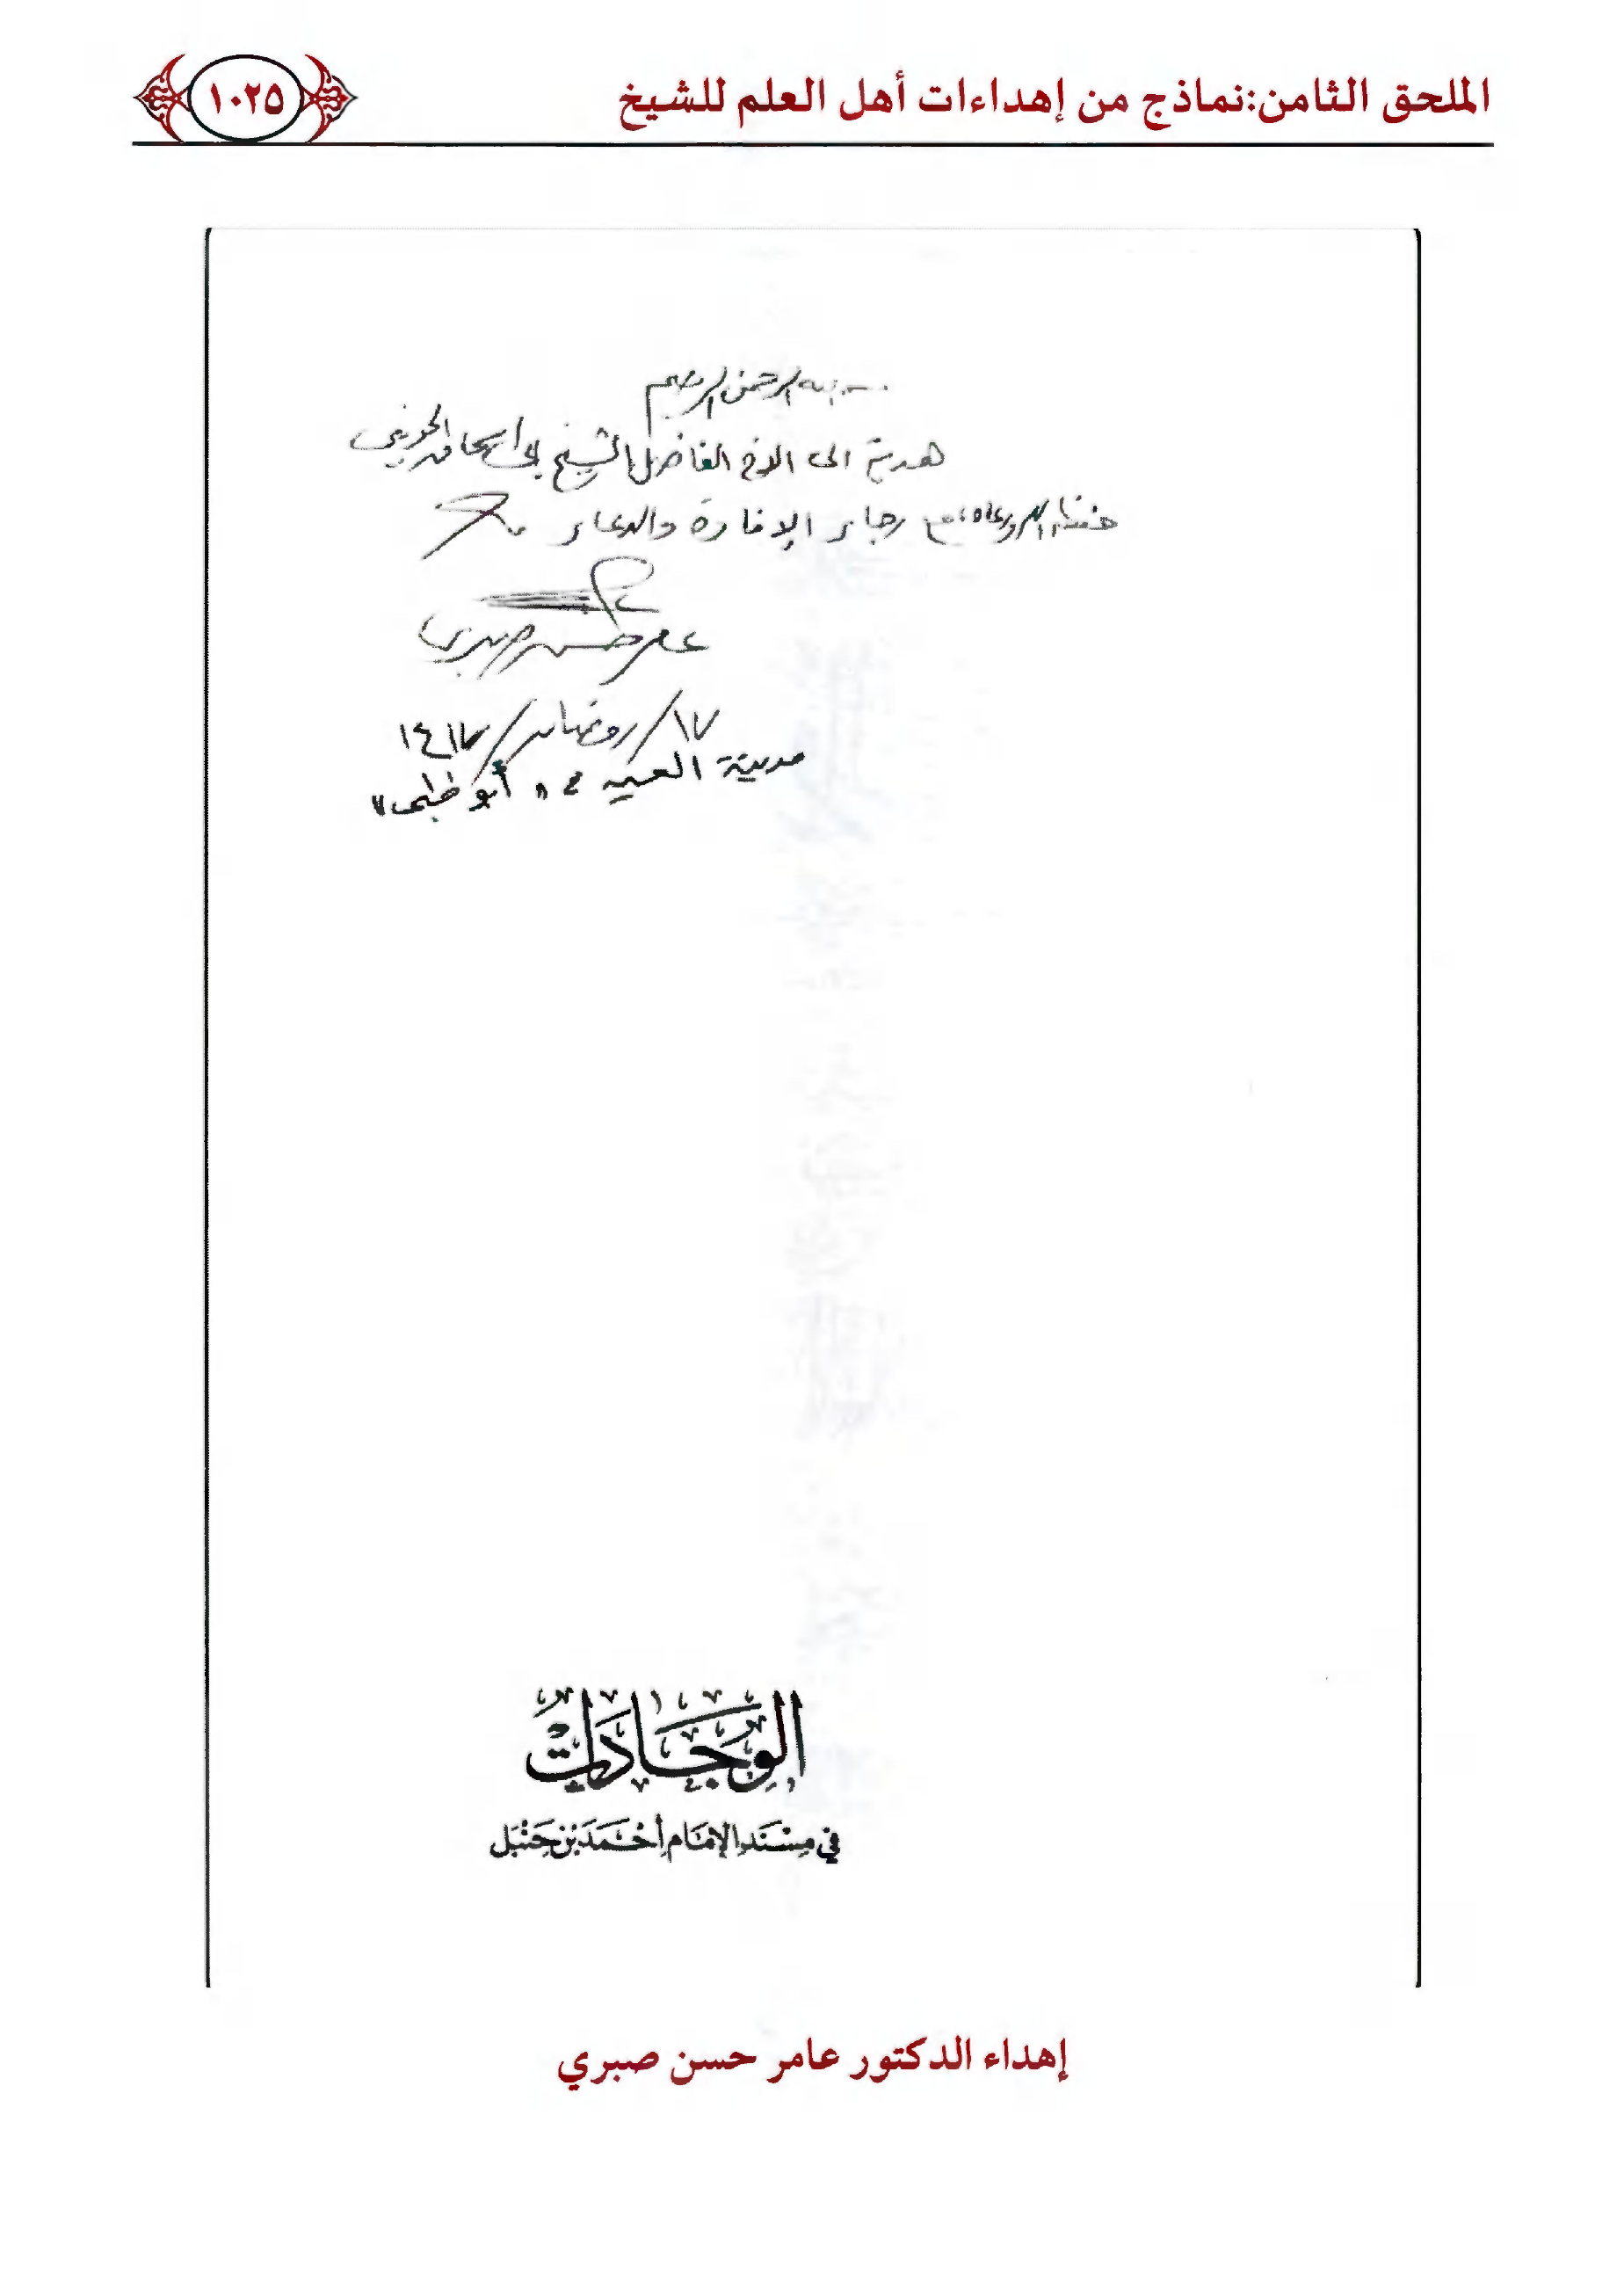 الملحق الثامن:نماذج من إهداءات أهل العلم للشيخ
١٠٢٥
بسم الله الرحمن الرحيم
هدية الى الأخ الفاضل الشيخ أبي إسحاق الحويني
حفظه الله ورعاه، مع رجاء الإفادة والدعاء
عامر حسن صبري
١٧/رمضان/١٤١٧
مدينة العين - "أبو ظبي"
الوِجَادَاتُ
في مسْنَد الإمَام أحْمَدَ بْن حَنْبَل
إهداء الدكتور عامر حسن صبري